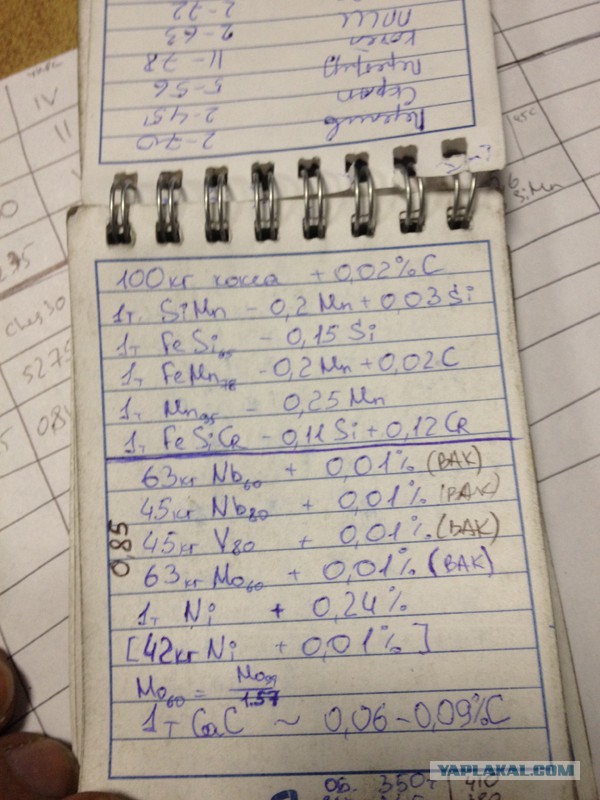 2-70
2-45
Скрап
5-56
11-78
2-63
2-22
IV
II
SiMn
100кг кокса + 0,02% C
1т. SiMn - 0,2 Mn + 0,03 Si
1т FeSi65 - 0,15 Si
1т FeMn78 - 0,2 Mn + 0,02 C
1т Mn95 - 0,25 Mn
1т FeSiCr - 0,11 Si + 0,12 Cr
63кг Nb60 + 0,01% (ВАК)
45кг Nb80 + 0,01% (ВАК)
45кг V80 + 0,01% (ВАК)
0,85
63кг Mo60 + 0,01% (ВАК)
1т Ni + 0,24%
[42кг Ni + 0,01%]
Mo60 = Mo99
1.57
1т CaC ~ 0,06 - 0,09% C
об. 350т 410
YAPLAKAL.COM